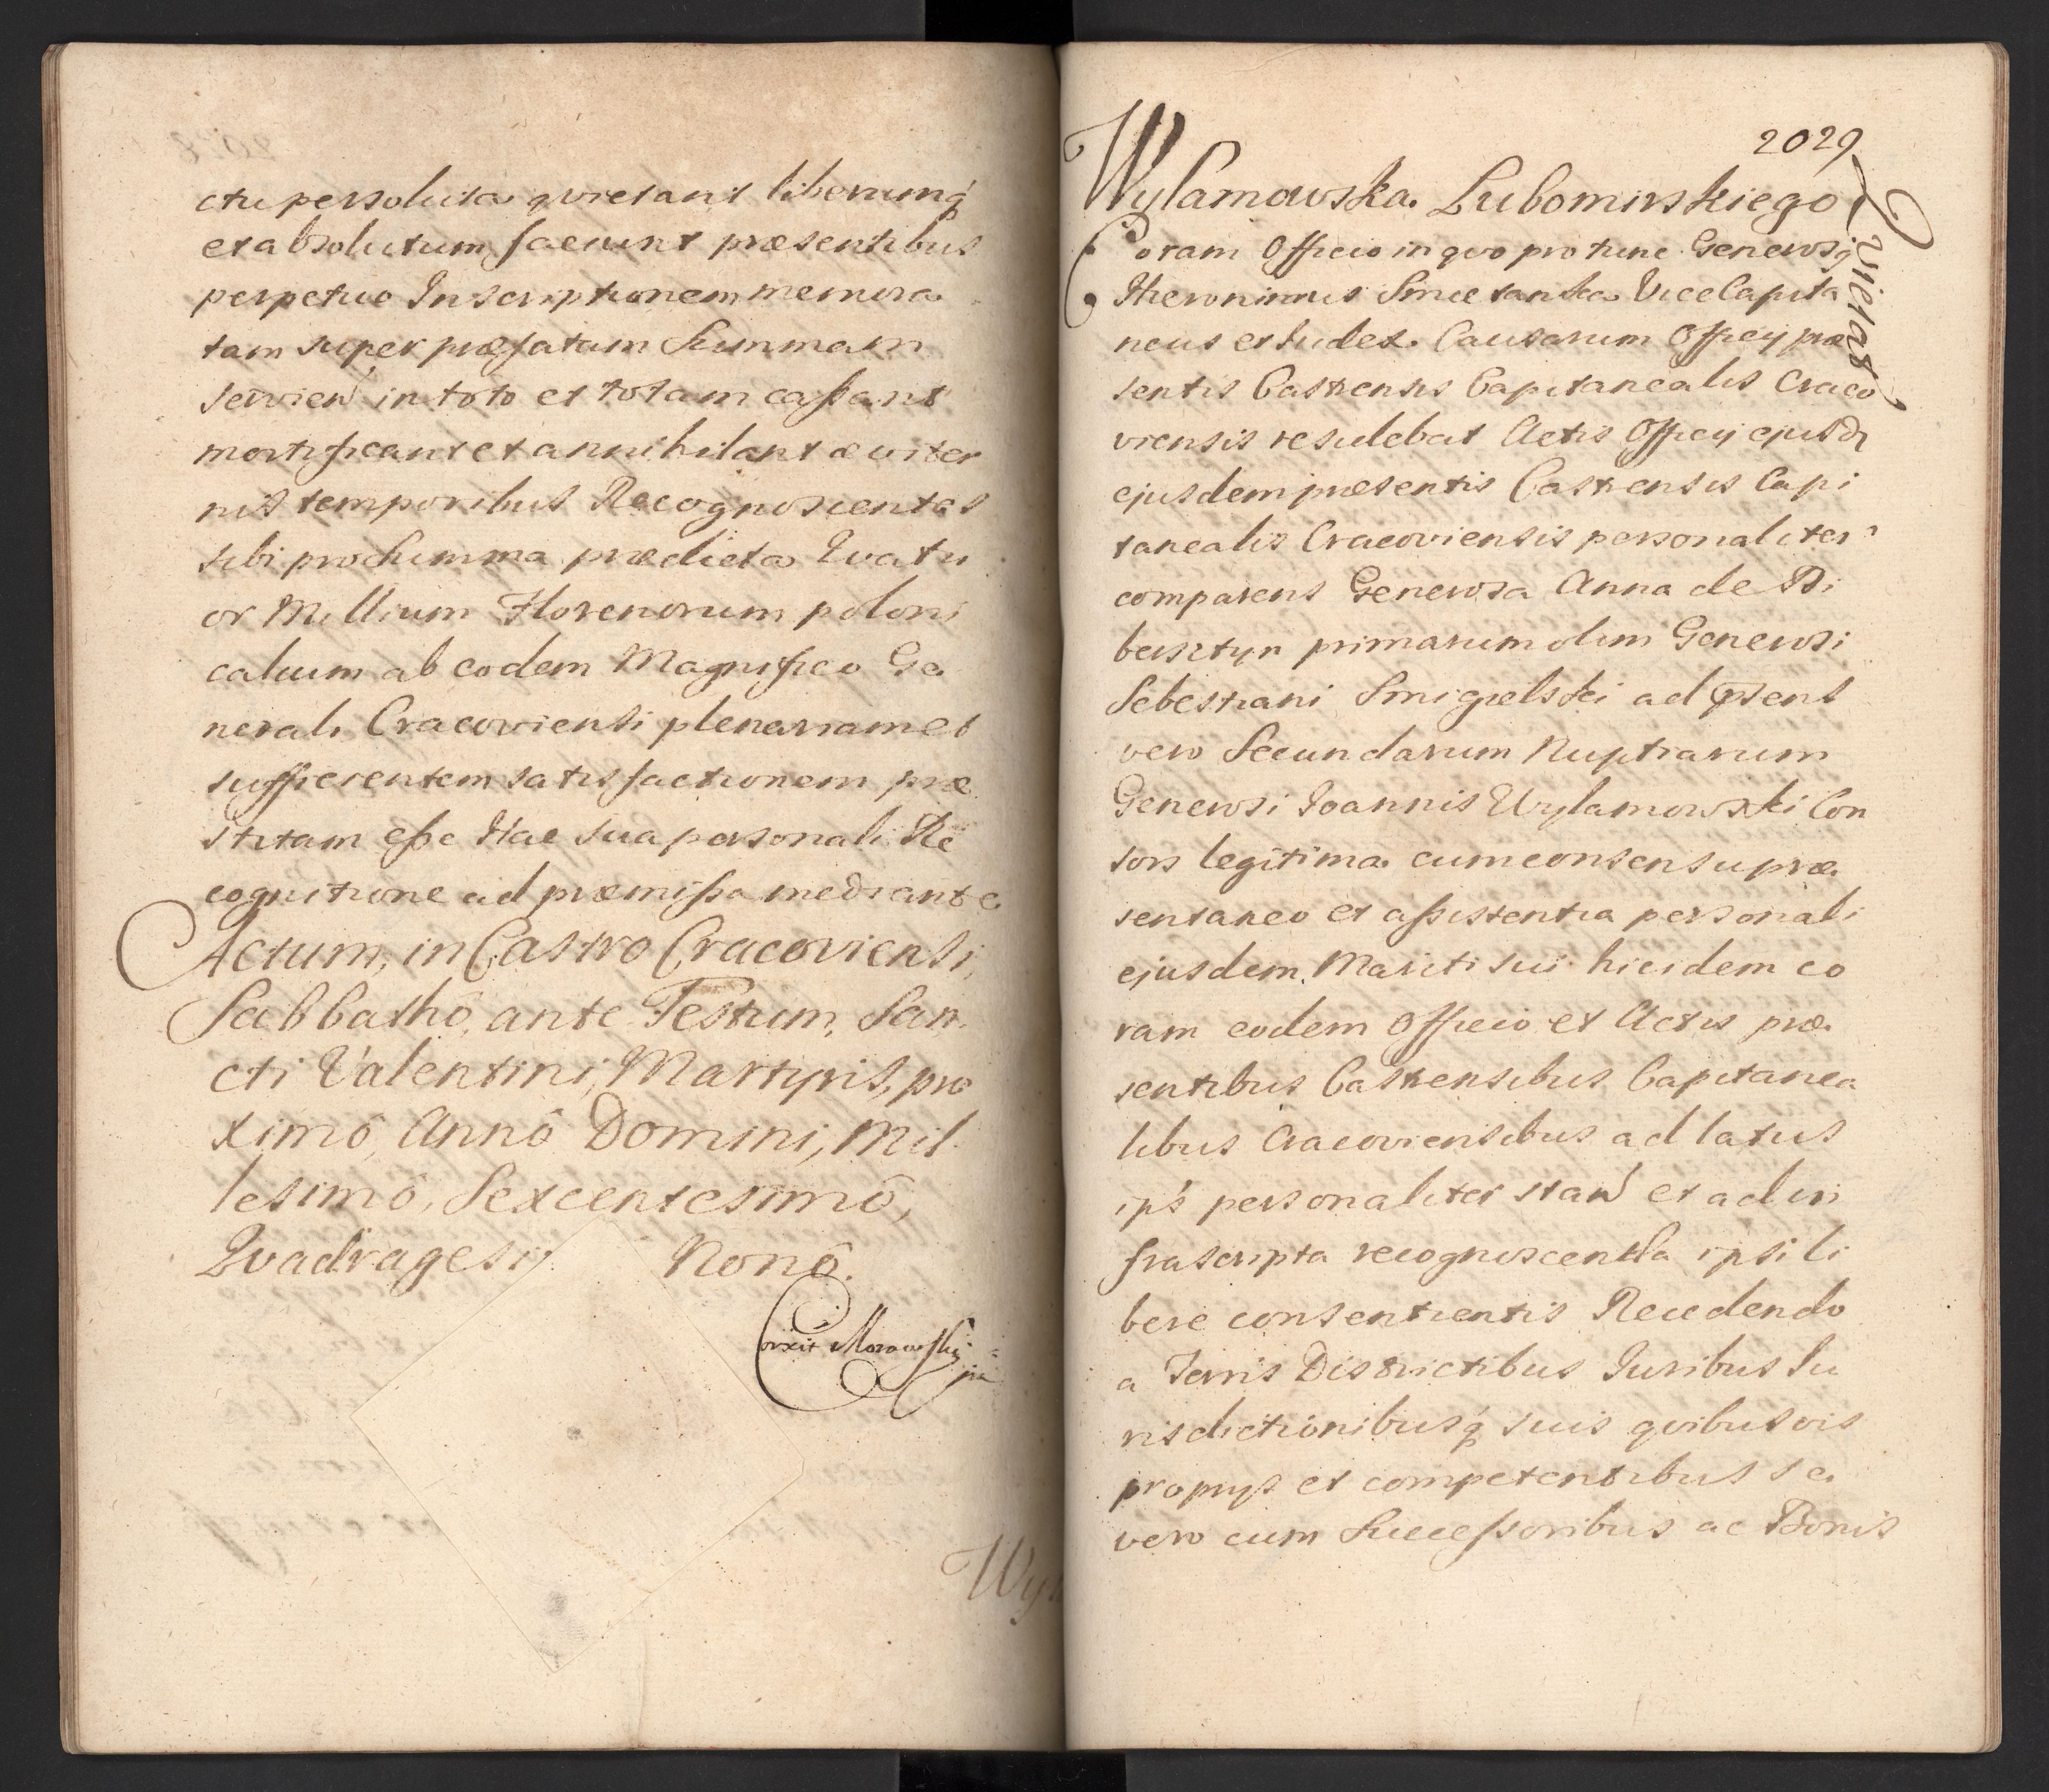 ctu persoluta quietant liberumq́
et absolutum faciunt præsentibus
perpetuo Inscriptionem memora
tam super præfatam Summam
servien in toto et totam cassant
mortificant et annihilant æviter
nis temporibus Recognoscentes
sibi pro Summa prædicta Quatu
or Millium Florenorum poloni
calium ab eodem Magnifico Ge
nerali Cracoviensi plenariam et
sufficientem satisfactionem præ
stitam esse Hac sua personali Re
cognitione ad præmissa mediante
Actum, in Castro Cracoviensi,
Sabbathô, ante Festum, San
cti Valentini, Martyris, pro
ximô, Annô Domini, Mil
lesimô, Sexcentesimô,
Quadragesi Nonô.
Correxit Morawsky
mp
Wyl
2029
Wylamowska Lubomirskiego
Quietat
Coram Officio in quo pro tunc Generosq
Hieronimus Smietanka ViceCapita
neus et Iudex Causarum Officij præ
sentis Castrensis Capitanealis Craco
viensis residebat Actis Officij ejusd
ejusdem præsentis Castrensis Capi
tanealis Cracoviensis personaliter
comparens Generosa Anna de Bi
bersztyn primarum olim Generosi
Sebestiani Smigielski ad præsens
vero Secundarum Nuptiarum
Generosi Ioannis Wylamowski Con
sors legitima cum consensu præ
sentaneo et assistentia personali
ejusdem Mariti sui hic idem co
ram eodem Officio et Actis præ
sentibus Castrensibus Capitanea
libus Cracoviensibus ad latus
ips personaliter stan et ad in
frascripta recognoscenda ipsi li
bere consentientis Recedendo
a Terris Districtibus Iuribus Iu
risdictionibusq́ suis quibusvis
proprijs et competentibus se
vero cum Successoribus ac Bonis